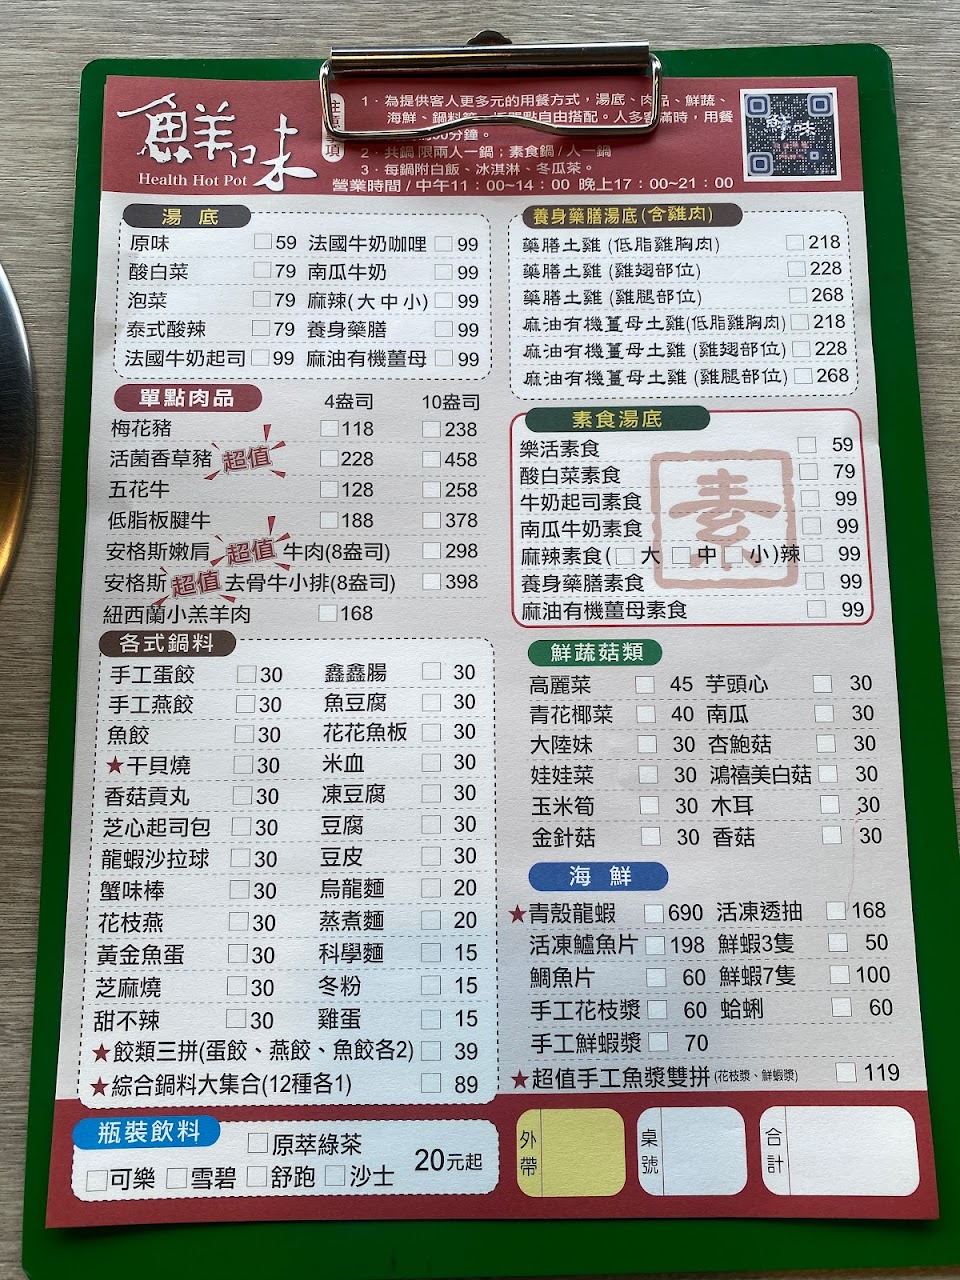 鮮味
Health Hot Pot
1．為提供客人更多元的用餐方式，湯底、肉品、鮮蔬、
海鮮、鍋料等
單點自由搭配。人多客滿時，用餐
分鐘。
2．共鍋 限兩人一鍋；素食鍋/人一鍋
3．每鍋附白飯、冰淇淋、冬瓜茶。
營業時間 / 中午11：00~14：00 晚上17：00~21：00
鮮味
湯底
原味 59 法國牛奶咖哩 99
酸白菜 79 南瓜牛奶 99
泡菜 79 麻辣(大中小) 99
泰式酸辣 79 養身藥膳 99
法國牛奶起司 99 麻油有機薑母 99
單點肉品 4盎司 10盎司
梅花豬 118 238
活菌香草豬 超值 228 458
五花牛 128 258
低脂板腱牛 188 378
安格斯嫩肩 超值 牛肉(8盎司) 298
安格斯 超值 去骨牛小排(8盎司) 398
紐西蘭小羔羊肉 168
各式鍋料
手工蛋餃 30 鑫鑫腸 30
手工燕餃 30 魚豆腐 30
魚餃 30 花花魚板 30
★干貝燒 30 米血 30
香菇貢丸 30 凍豆腐 30
芝心起司包 30 豆腐 30
龍蝦沙拉球 30 豆皮 30
蟹味棒 30 烏龍麵 20
花枝燕 30 蒸煮麵 20
黃金魚蛋 30 科學麵 15
芝麻燒 30 冬粉 15
甜不辣 30 雞蛋 15
★餃類三拼(蛋餃、燕餃、魚餃各2) 39
★綜合鍋料大集合(12種各1) 89
瓶裝飲料
原萃綠茶
可樂 雪碧 舒跑 沙士
20元起
養身藥膳湯底(含雞肉)
藥膳土雞 (低脂雞胸肉) 218
藥膳土雞 (雞翅部位) 228
藥膳土雞 (雞腿部位) 268
麻油有機薑母土雞(低脂雞胸肉) 218
麻油有機薑母土雞 (雞翅部位) 228
麻油有機薑母土雞 (雞腿部位) 268
素食湯底
素
樂活素食 59
酸白菜素食 79
牛奶起司素食 99
南瓜牛奶素食 99
麻辣素食(大 中 小)辣 99
養身藥膳素食 99
麻油有機薑母素食 99
鮮蔬菇類
高麗菜 45 芋頭心 30
青花椰菜 40 南瓜 30
大陸妹 30 杏鮑菇 30
娃娃菜 30 鴻禧美白菇 30
玉米筍 30 木耳 30
金針菇 30 香菇 30
海鮮
★青殼龍蝦 690 活凍透抽 168
活凍鱸魚片 198 鮮蝦3隻 50
鯛魚片 60 鮮蝦7隻 100
手工花枝漿 60 蛤蜊 60
手工鮮蝦漿 70
★超值手工魚漿雙拼(花枝漿、鮮蝦漿) 119
外帶
桌號
合計